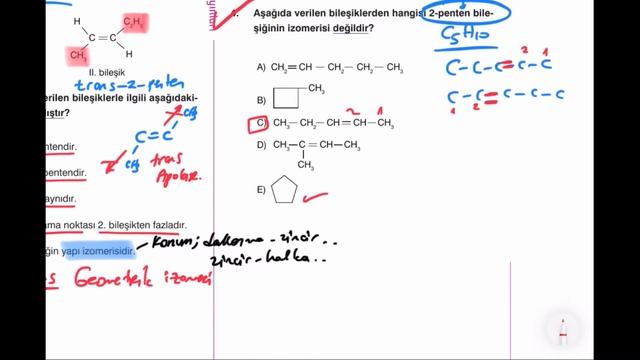 H
C₂H₅
C = C
CH₃
H
II. bileşik
trans-2-penten
erilen bileşiklerle ilgili aşağıdaki-
ıştır?
CH₃
C = C
CH₃
trans
Apolar.
entendir.
pentendir.
aynıdır.
ama noktası 2. bileşikten fazladır.
ğin yapı izomerisidir.
Konum; dallanma-zincir..
zincir-halka..
s Geometrik izomeri
4. Aşağıda verilen bileşiklerden hangisi 2-penten bile-
şiğinin izomerisi değildir?
A) CH₂=CH – CH₂ – CH₂ – CH₃
B) CH₃
2 1
C) CH₃ – CH₂ – CH=CH – CH₃
D) CH₃ – C = CH – CH₃
CH₃
E)
C₅H₁₀
2 1
C – C – C = C – C
C – C = C – C – C
1 2